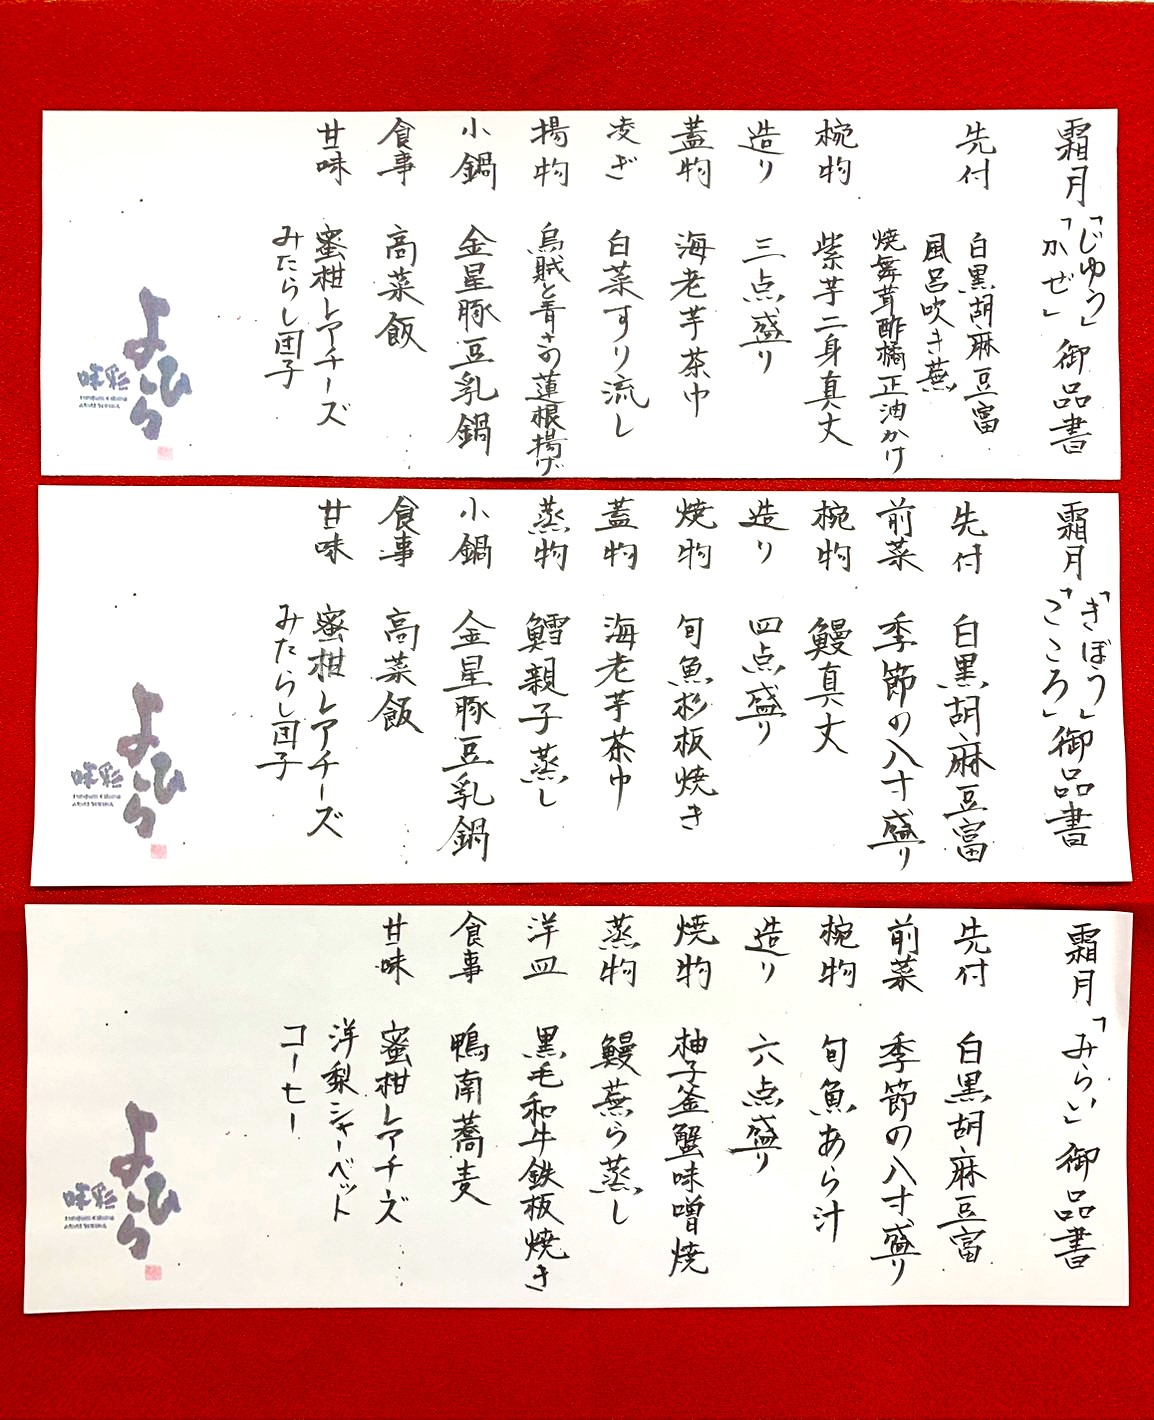 霜月「じゆう」「かぜ」御品書
先付 白黒胡麻豆富
風呂吹き蕪
焼舞茸酢橘正油かけ
椀物 紫芋二身真丈
造り 三点盛り
蓋物 海老芋茶巾
凌ぎ 白菜すり流し
揚物 烏賊と青さの蓮根揚げ
小鍋 金星豚豆乳鍋
食事 高菜飯
甘味 蜜柑レアチーズ
みたらし団子
よひら
味彩
霜月「きぼう」「こころ」御品書
先付 白黒胡麻豆富
前菜 季節の八寸盛り
椀物 鰻真丈
造り 四点盛り
焼物 旬魚杉板焼き
蓋物 海老芋茶巾
蒸物 鱈親子蒸し
小鍋 金星豚豆乳鍋
食事 高菜飯
甘味 蜜柑レアチーズ
みたらし団子
よひら
味彩
霜月「みらい」御品書
先付 白黒胡麻豆富
前菜 季節の八寸盛り
椀物 旬魚あら汁
造り 六点盛り
焼物 柚子釜蟹味噌焼
蒸物 鰻蕪ら蒸し
洋皿 黒毛和牛鉄板焼き
食事 鴨南蕎麦
甘味 蜜柑レアチーズ
洋梨シャーベット
コーヒー
よひら
味彩